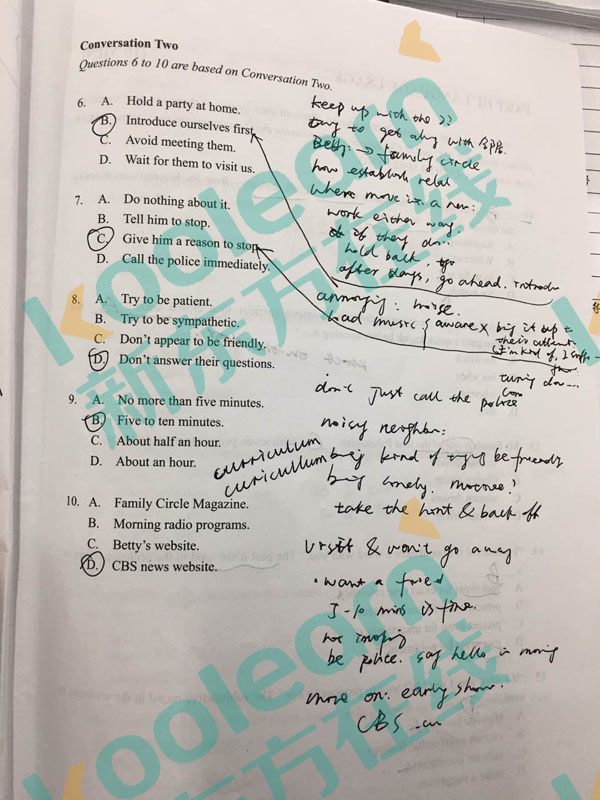 Conversation Two
Questions 6 to 10 are based on Conversation Two.
6. A. Hold a party at home.
B. Introduce ourselves first.
C. Avoid meeting them.
D. Wait for them to visit us.
7. A. Do nothing about it.
B. Tell him to stop.
C. Give him a reason to stop.
D. Call the police immediately.
8. A. Try to be patient.
B. Try to be sympathetic.
C. Don't appear to be friendly.
D. Don't answer their questions.
9. A. No more than five minutes.
B. Five to ten minutes.
C. About half an hour.
D. About an hour.
10. A. Family Circle Magazine.
B. Morning radio programs.
C. Betty's website.
D. CBS news website.
keep up with the
to get along with
Betty: → family circle
how establish relat
where move in a new:
work either way.
if they don
hold back.
after days, go ahead. introdu
annoying: noise.
loud music aware x
don't just call the police
noisy neighbor:
curriculum
curicullum
kind of be friendly
lonely.
take the hint & back off
visit & won't go away
want a friend
5-10 mins is fine.
be police. say hello in
move on: early show.
CBS
kooleom
新东方在线
kooleom
新东方在线